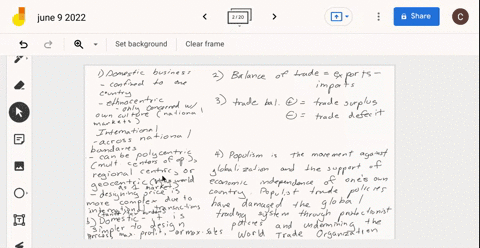 june 9 2022
2/20
Share
C
Set background
Clear frame
1) Domestic business
- confined to one
country
- ethnocentric
- only concerned w/
own culture (national
markets)
International
- across national
boundaries
- can be polycentric
(mult centers of op),
regional centrics, or
geocentric (
as 1 market)
- designing price is
more complex due to
international transactions
b) Domestic - it is
simpler to design
max. profit, or max. sales
2) Balance of trade = exports -
imports
3) trade bal. + = trade surplus
- = trade deficit
4) Populism is the movement against
globalization and the support of
economic independence of one's own
country. Populist trade policies
have damaged the global
trading system through protectionist
policies and undermining the
World Trade Organization